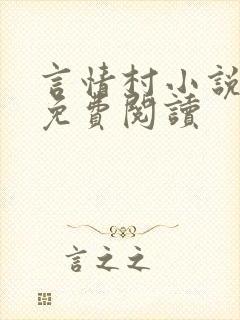 言情村小說
免費閱讀
言之之